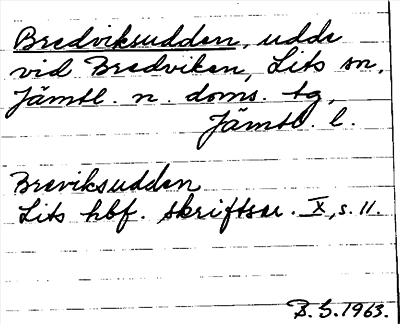 Bredviksudden, udde
vid Bredviken, Lits sn,
Jämtl. n. doms. tg,
Jämtl. l.
Breviksudden
Lits hbf. skriftser. X, s. 11.
B. G. 1963.